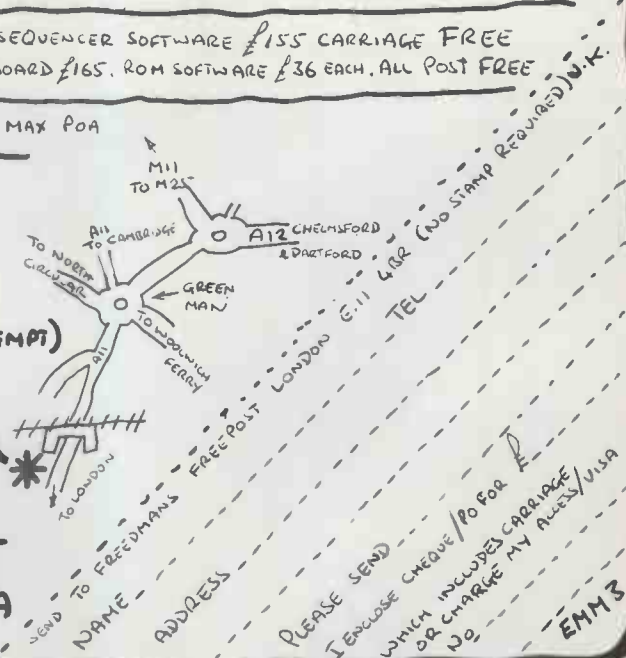 SEQUENCER SOFTWARE £155 CARRIAGE FREE
BOARD £165. ROM SOFTWARE £36 EACH. ALL POST FREE
MAX POA
M11
TO M25
A11
TO CAMBRIDGE
TO NORTH
CIRCULAR
A12
CHELMSFORD
& DARTFORD
GREEN
MAN
TO WOOLWICH
FERRY
A11
EMPT)
TO LONDON
A
SEND TO FREEDMANS FREEPOST LONDON E.11 4BR (NO STAMP REQUIRED) U.K.
NAME
TEL
ADDRESS
PLEASE SEND
I ENCLOSE CHEQUE/PO FOR £
WHICH INCLUDES CARRIAGE
OR CHARGE MY ACCESS/VISA
NO
EMM 3